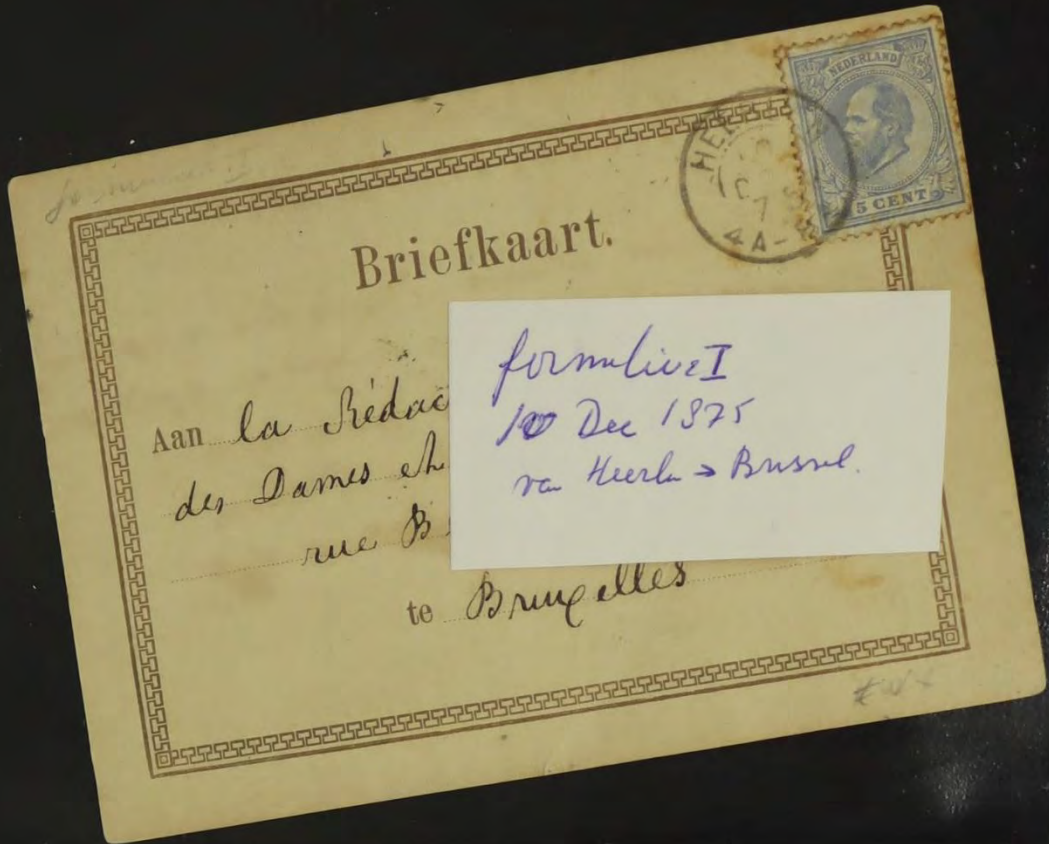 NEDERLAND
5 CENT
HE
7
4A-
Briefkaart.
Aan la Rédac
des Dames et
rue B
te Bruxelles
I
10 Dec 1875
van Heerlen → Brussel.